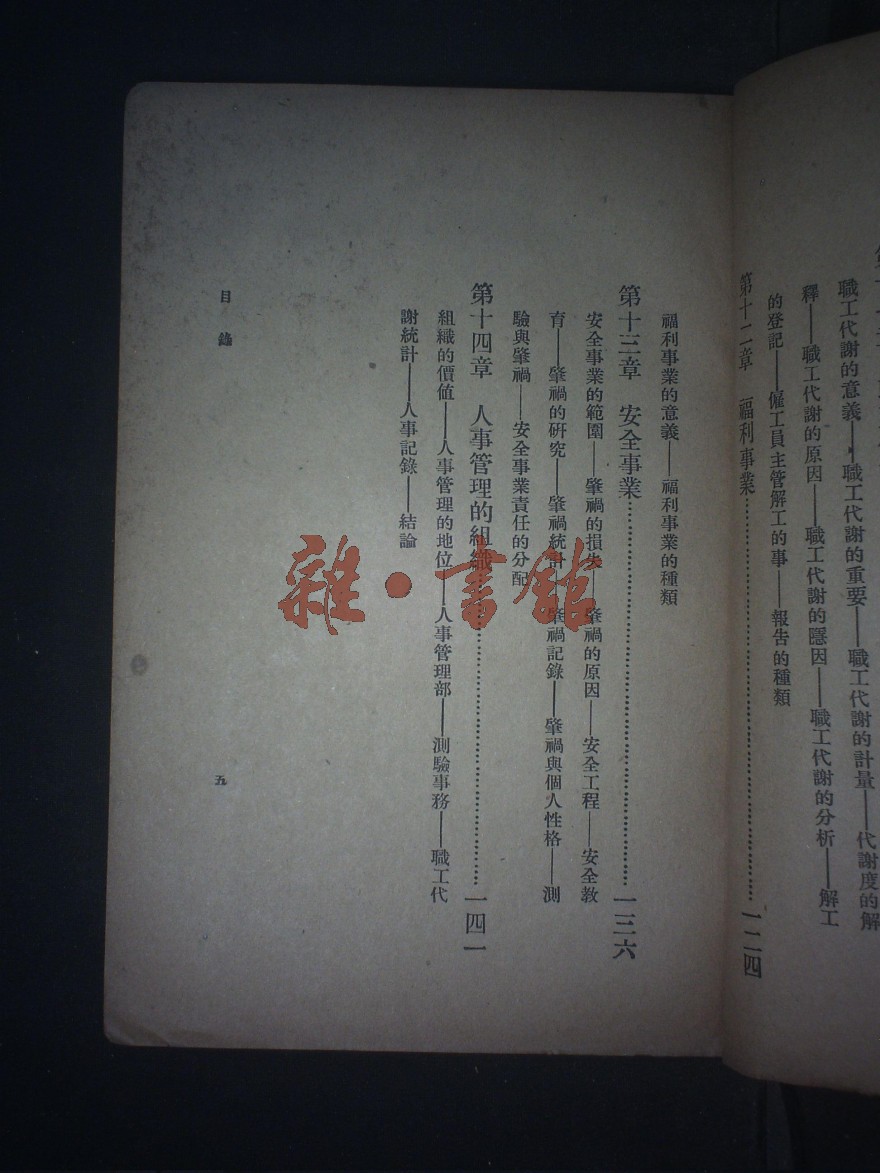 職工代謝的意義——職工代謝的重要——職工代謝的計量——代謝度的解
釋——職工代謝的原因——職工代謝的隱因——職工代謝的分析——解工
的登記——僱工員主管解工的事——報告的種類
第十二章　福利事業……一二四
福利事業的意義——福利事業的種類
第十三章　安全事業……一三六
安全事業的範圍——肇禍的損失——肇禍的原因——安全工程——安全教
育——肇禍的研究——肇禍統計——肇禍記錄——肇禍與個人性格——測
驗與肇禍——安全事業責任的分配
第十四章　人事管理的組織……一四一
組織的價值——人事管理的地位——人事管理部——測驗事務——職工代
謝統計——人事記錄——結論
目錄
五
雜·書館